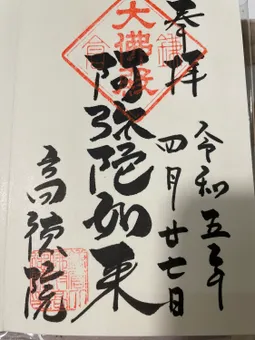 奉拝
令和五年
四月廿七日
阿弥陀如来
大佛殿
高徳院